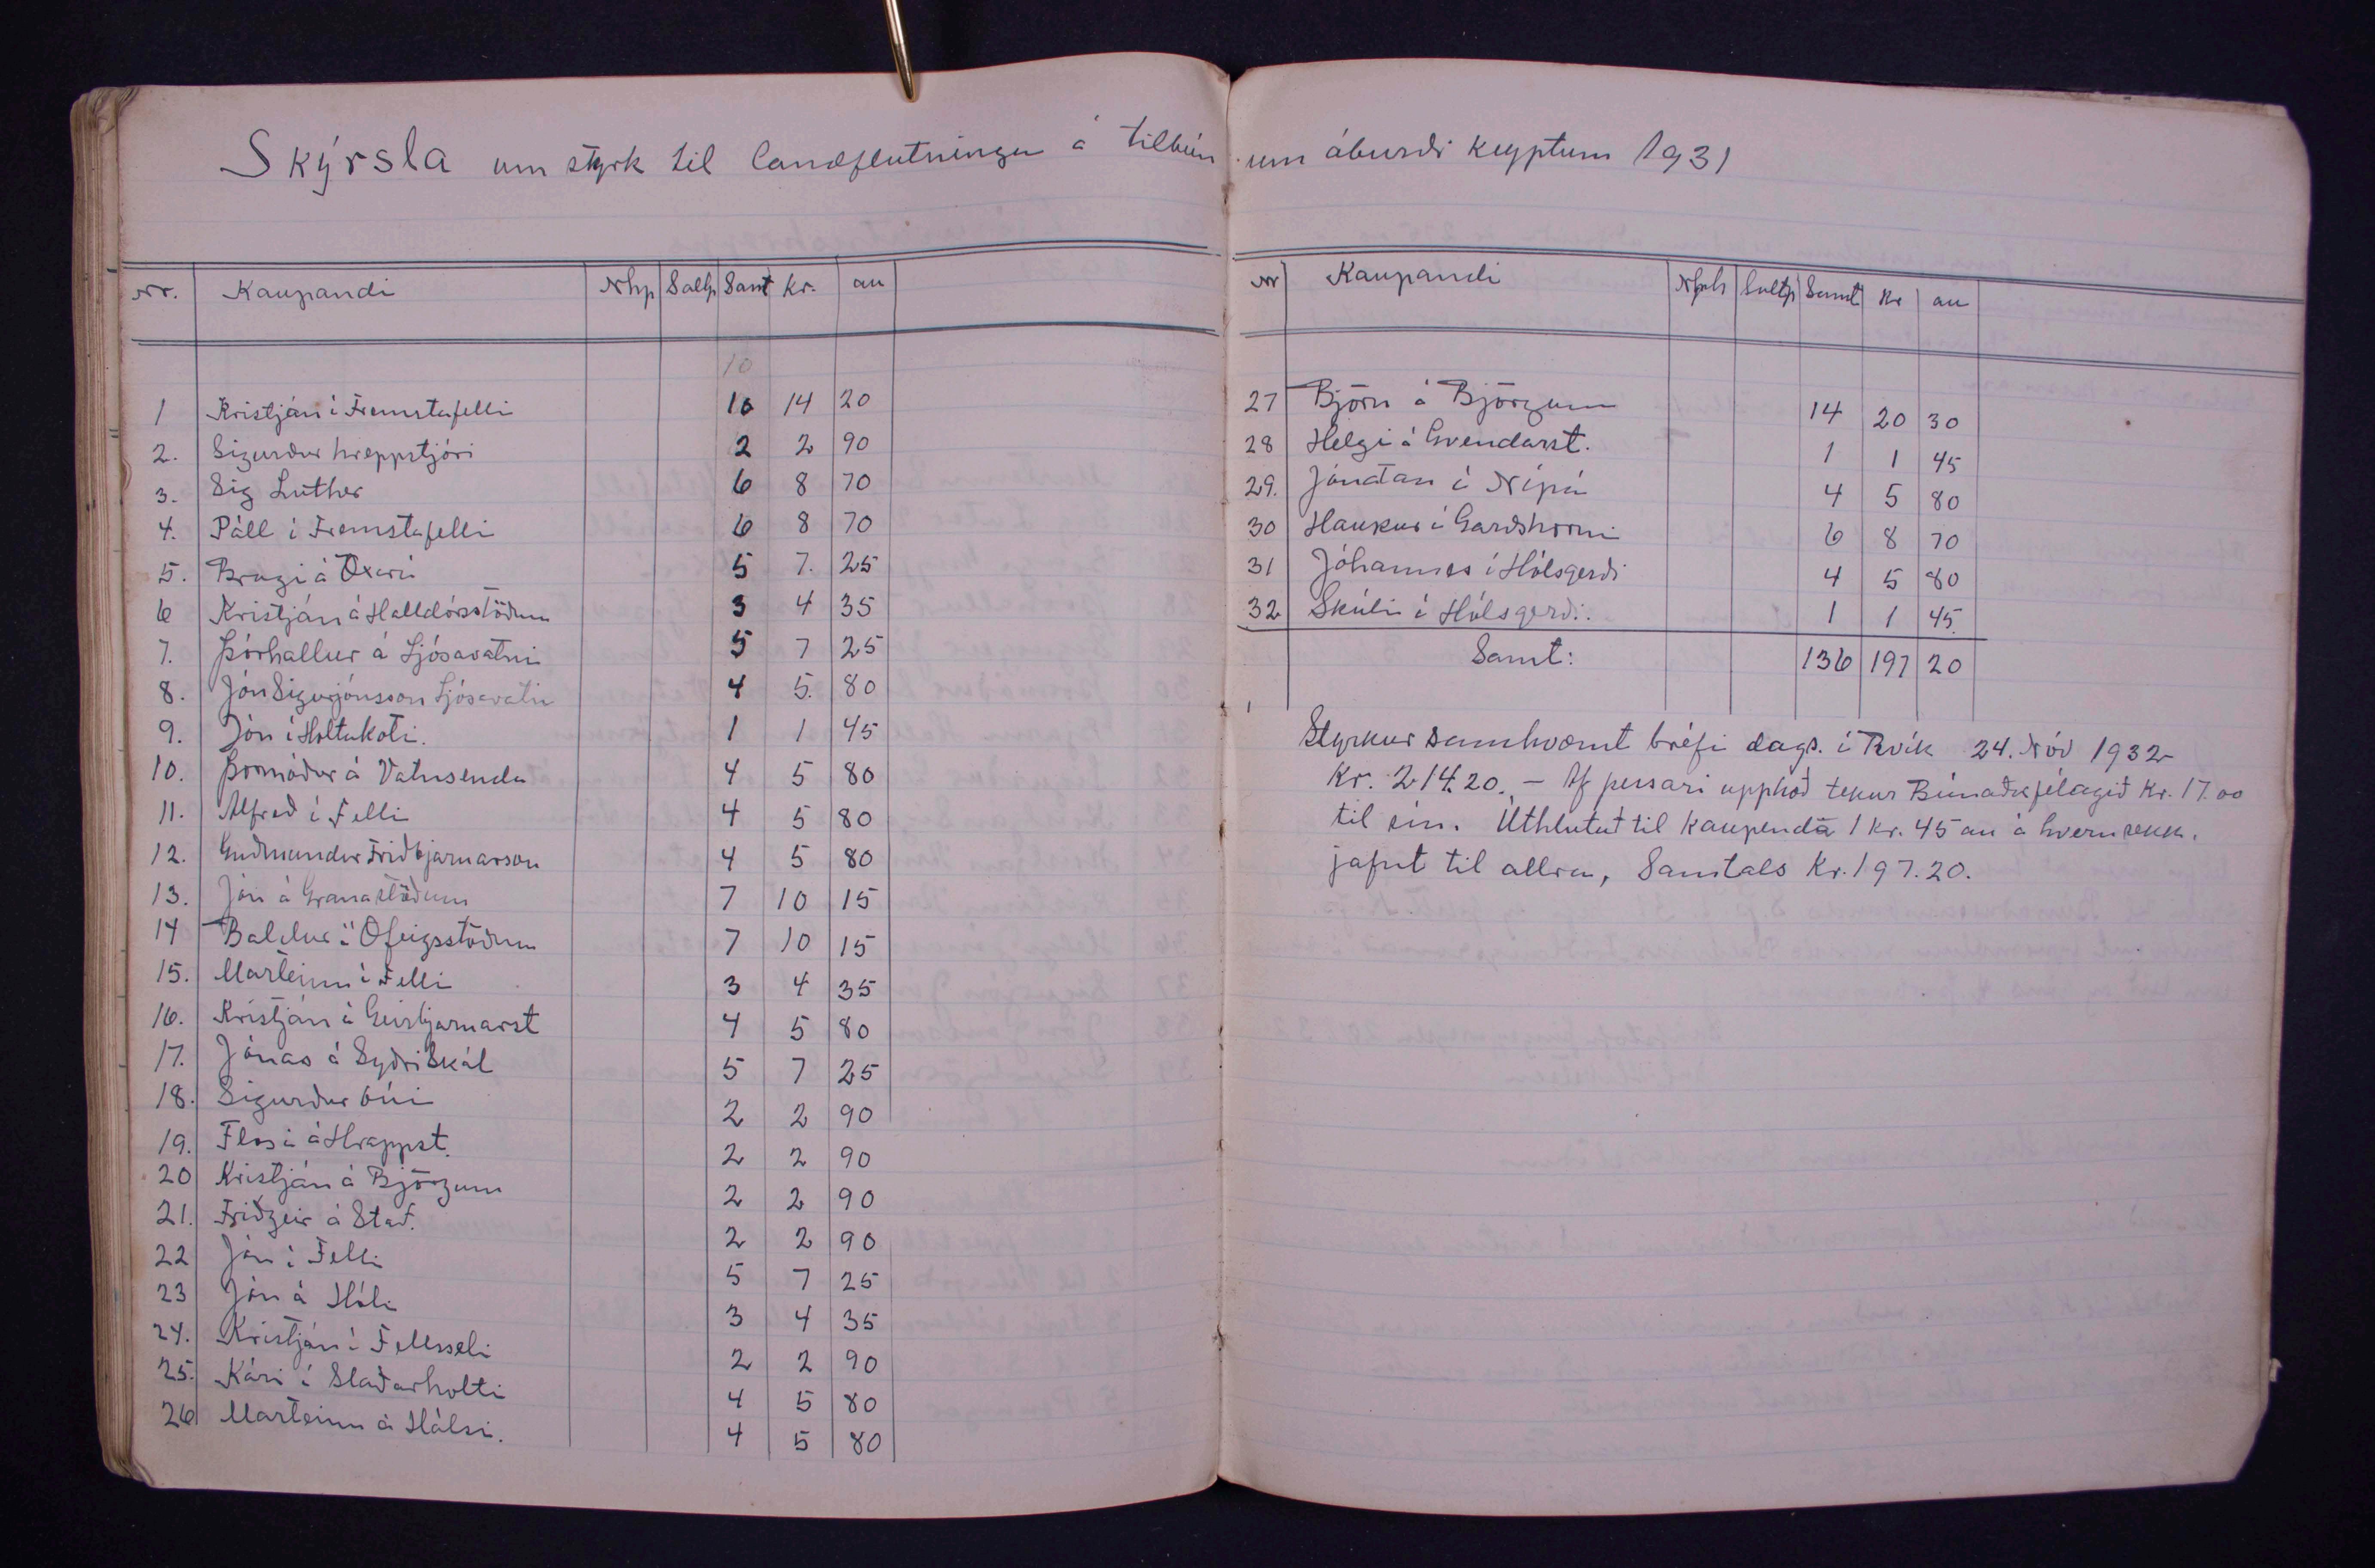 Skýrsla um styrk til landflutninga á tilbún um áburði keyptum 1931
Nr. Kaupandi Nhp Saltp Samt kr. au
10
1 Kristján í Fremstafelli 10 14 20
2. Sigurður hreppstjóri 2 2 90
3. Sig Luther 6 8 70
4. Páll í Fremstafelli 6 8 70
5. Bragi á Öxará 5 7. 25
6 Kristján á Halldórsstöðum 3 4 35
7. Þórhallur á Ljósavatni 5 7 25
8. Jón Sigurjónsson Ljósavatni 4 5. 80
9. Jón í Holtakoti. 1 1 45
10. Þormóður á Vatnsenda 4 5 80
11. Alfreð í Felli 4 5 80
12. Guðmundur Friðbjarnarson 4 5 80
13. Jón á Granastöðum 7 10 15
14 Baldur á Ófeigsstöðum 7 10 15
15. Marteinn í Felli 3 4 35
16. Kristján á Geirbjarnarst 4 5 80
17. Jónas á Syðri Skál 5 7 25
18. Sigurður búi 2 2 90
19. Flosi á Hrappst. 2 2 90
20 Kristján á Björgum 2 2 90
21. Friðgeir á Stað. 2 2 90
22 Jón í Felli 5 7 25
23 Jón á Hóli 3 4 35
24. Kristján í Fellsseli 2 2 90
25. Kári í Staðarholti 4 5 80
26 Marteinn á Hálsi. 4 5 80
Nr Kaupandi Saltp Samt kr au
27 Björn á Björgum 14 20 30
28 Helgi á Gvendarst. 1 1 45
29. Jónatan í Nípá 4 5 80
30 Haukur í Garðshorni 6 8 70
31 Jóhannes í Hólsgerði 4 5 80
32 Skúli í Hólsgerði. 1 1 45
Samt: 136 197 20
Styrkur samkvæmt bréfi dags. í Rvík 24. Nóv 1932
Kr. 214.20. - Af þessari upphæð tekur Búnaðafélagið Kr. 17.00
til sín. Úthlutað til kaupenda 1 kr. 45 au á hvern sekk.
jafnt til allra, Samtals Kr. 197.20.